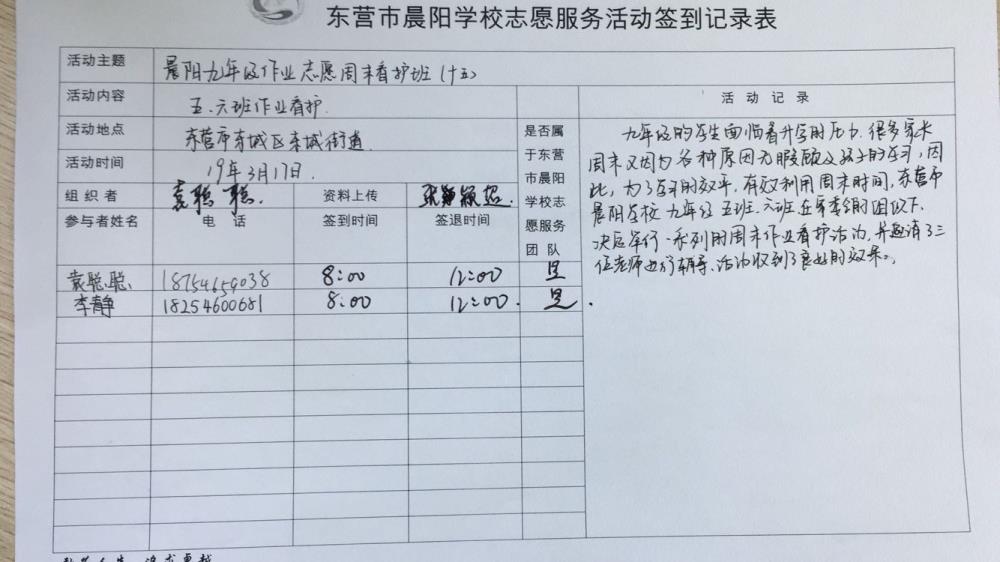 东营市晨阳学校志愿服务活动签到记录表
活动主题 晨阳九年级作业志愿周末看护班(十五)
活动内容 五.六班作业看护.
活动地点 东营市东城区东城街道
活动时间 19年3月17日.
组织者 袁聪聪. 资料上传
参与者姓名 电话 签到时间 签退时间
是否属
于东营
市晨阳
学校志
愿服务
团队
袁聪聪 18754659038 8:00 12:00 是
李静 18254600681 8:00 12:00. 是.
活动记录
九年级的学生面临着升学的压力.很多家长
周末又因为各种原因无暇顾及孩子的学习,因
此,为了学习的效率,有效利用周末时间,东营市
晨阳学校九年级五班.六班在家委会的组织下.
决定举行一系列的周末作业看护活动,并邀请了三
位老师进行辅导,活动收到了良好的效果。